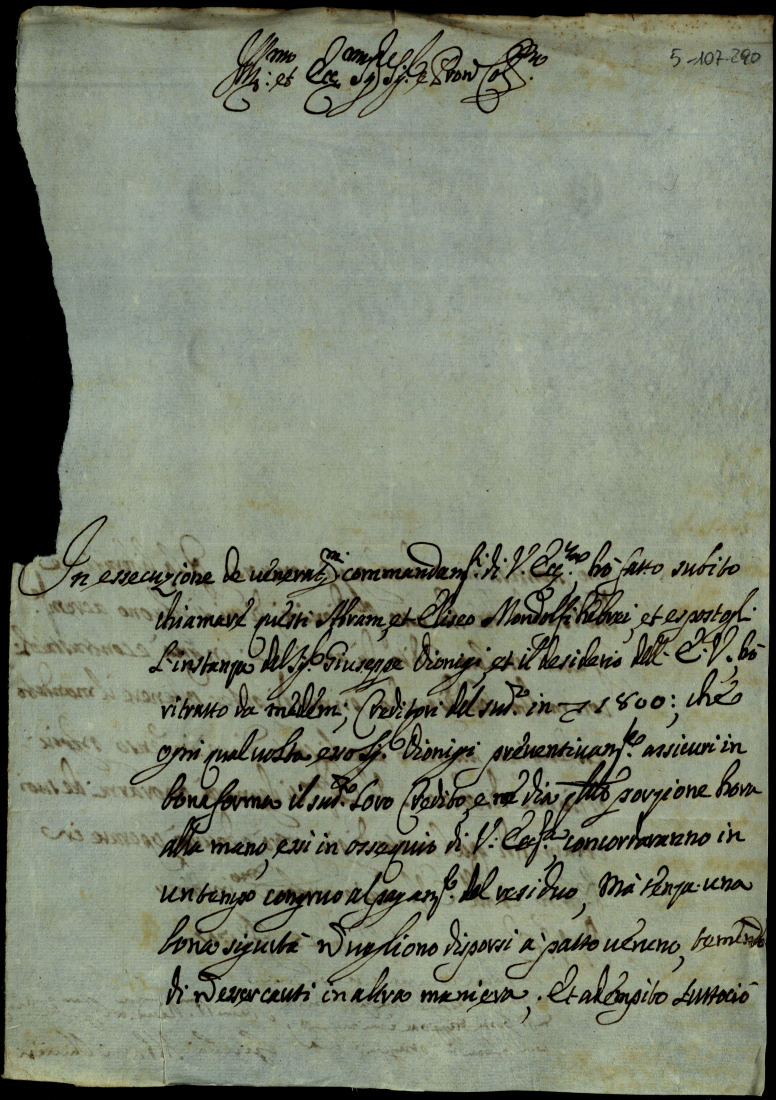 Ill.mo et Ecc.mo Sig.r Sig.r e Pron Col.mo
5-107-290
In essecuzione de venerat.mi commandam.ti di V. Ecc.za hò fatto subito
chiamare questi Abram, et Eliseo Mondolfi Hebrei, et espostogli
l'instanza del Sig.r Giuseppe Dionigi, et il desiderio dell' E. V., hò
ritratto da medemi, Creditori del sud.o in 1800:, che
ogni qual volta esso Sig.r Dionigi preventivam.te assicuri in
bona forma il sud.o loro Credito, e ne dia porzione hora
alla mano, essi in ossequio di V. Ecc.za concorderanno in
un tempo congruo al pagam.to del residuo, Mà senza una
bona sigurtà non vogliono disporsi à patto veruno, temendo
di non esser cauti in altra maniera. Et adempito tuttociò